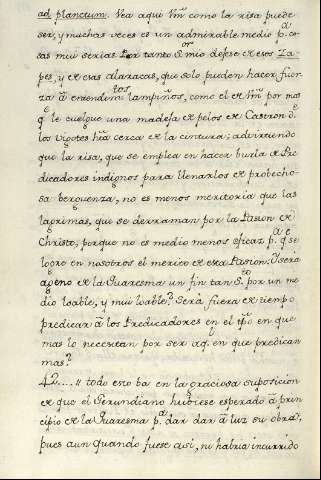 ad planctum. Vea aqui Vm̃ como la risa puede
ser, y muchas veces es un admirable medio p.ª co-
sas muy serias. Por tanto S.or mio dejese de esos Za-
pes, y de esas alaracas, que solo pueden hacer fuer-
za â entendim.tos lampiños, como el de Vm̃ por mas
q.e le cuelgue una madeja de pelos de Castron de
los vigotes hâcia cerca de la cintura; advirtiendo
que la risa, que se emplea en hacer burla de Pre-
dicadores indignos para llenarlos de probecho-
sa berguenza, no es menos meritoria que las
lagrimas, que se derraman por la Pasion de
Christo, porque no es medio menos eficaz p.ª q.e se
logre en nosotros el merito de esta Pasion; Y será
ageno de la Quaresma un fin tan S.to por un me-
dio loable, y mui loable? Será fuera de tiempo
predicar â los Predicadores en el tp̃o en que
mas lo necesitan por ser aq.l en que predican
mas?
42.... // todo esto ba en la graciosa suposicion
de que el Gerundiano hubiese esperado â prin-
cipio de la Quaresma p.ª dar dar â luz su obra;
pues aun quando fuese asi, ni habria incurrido